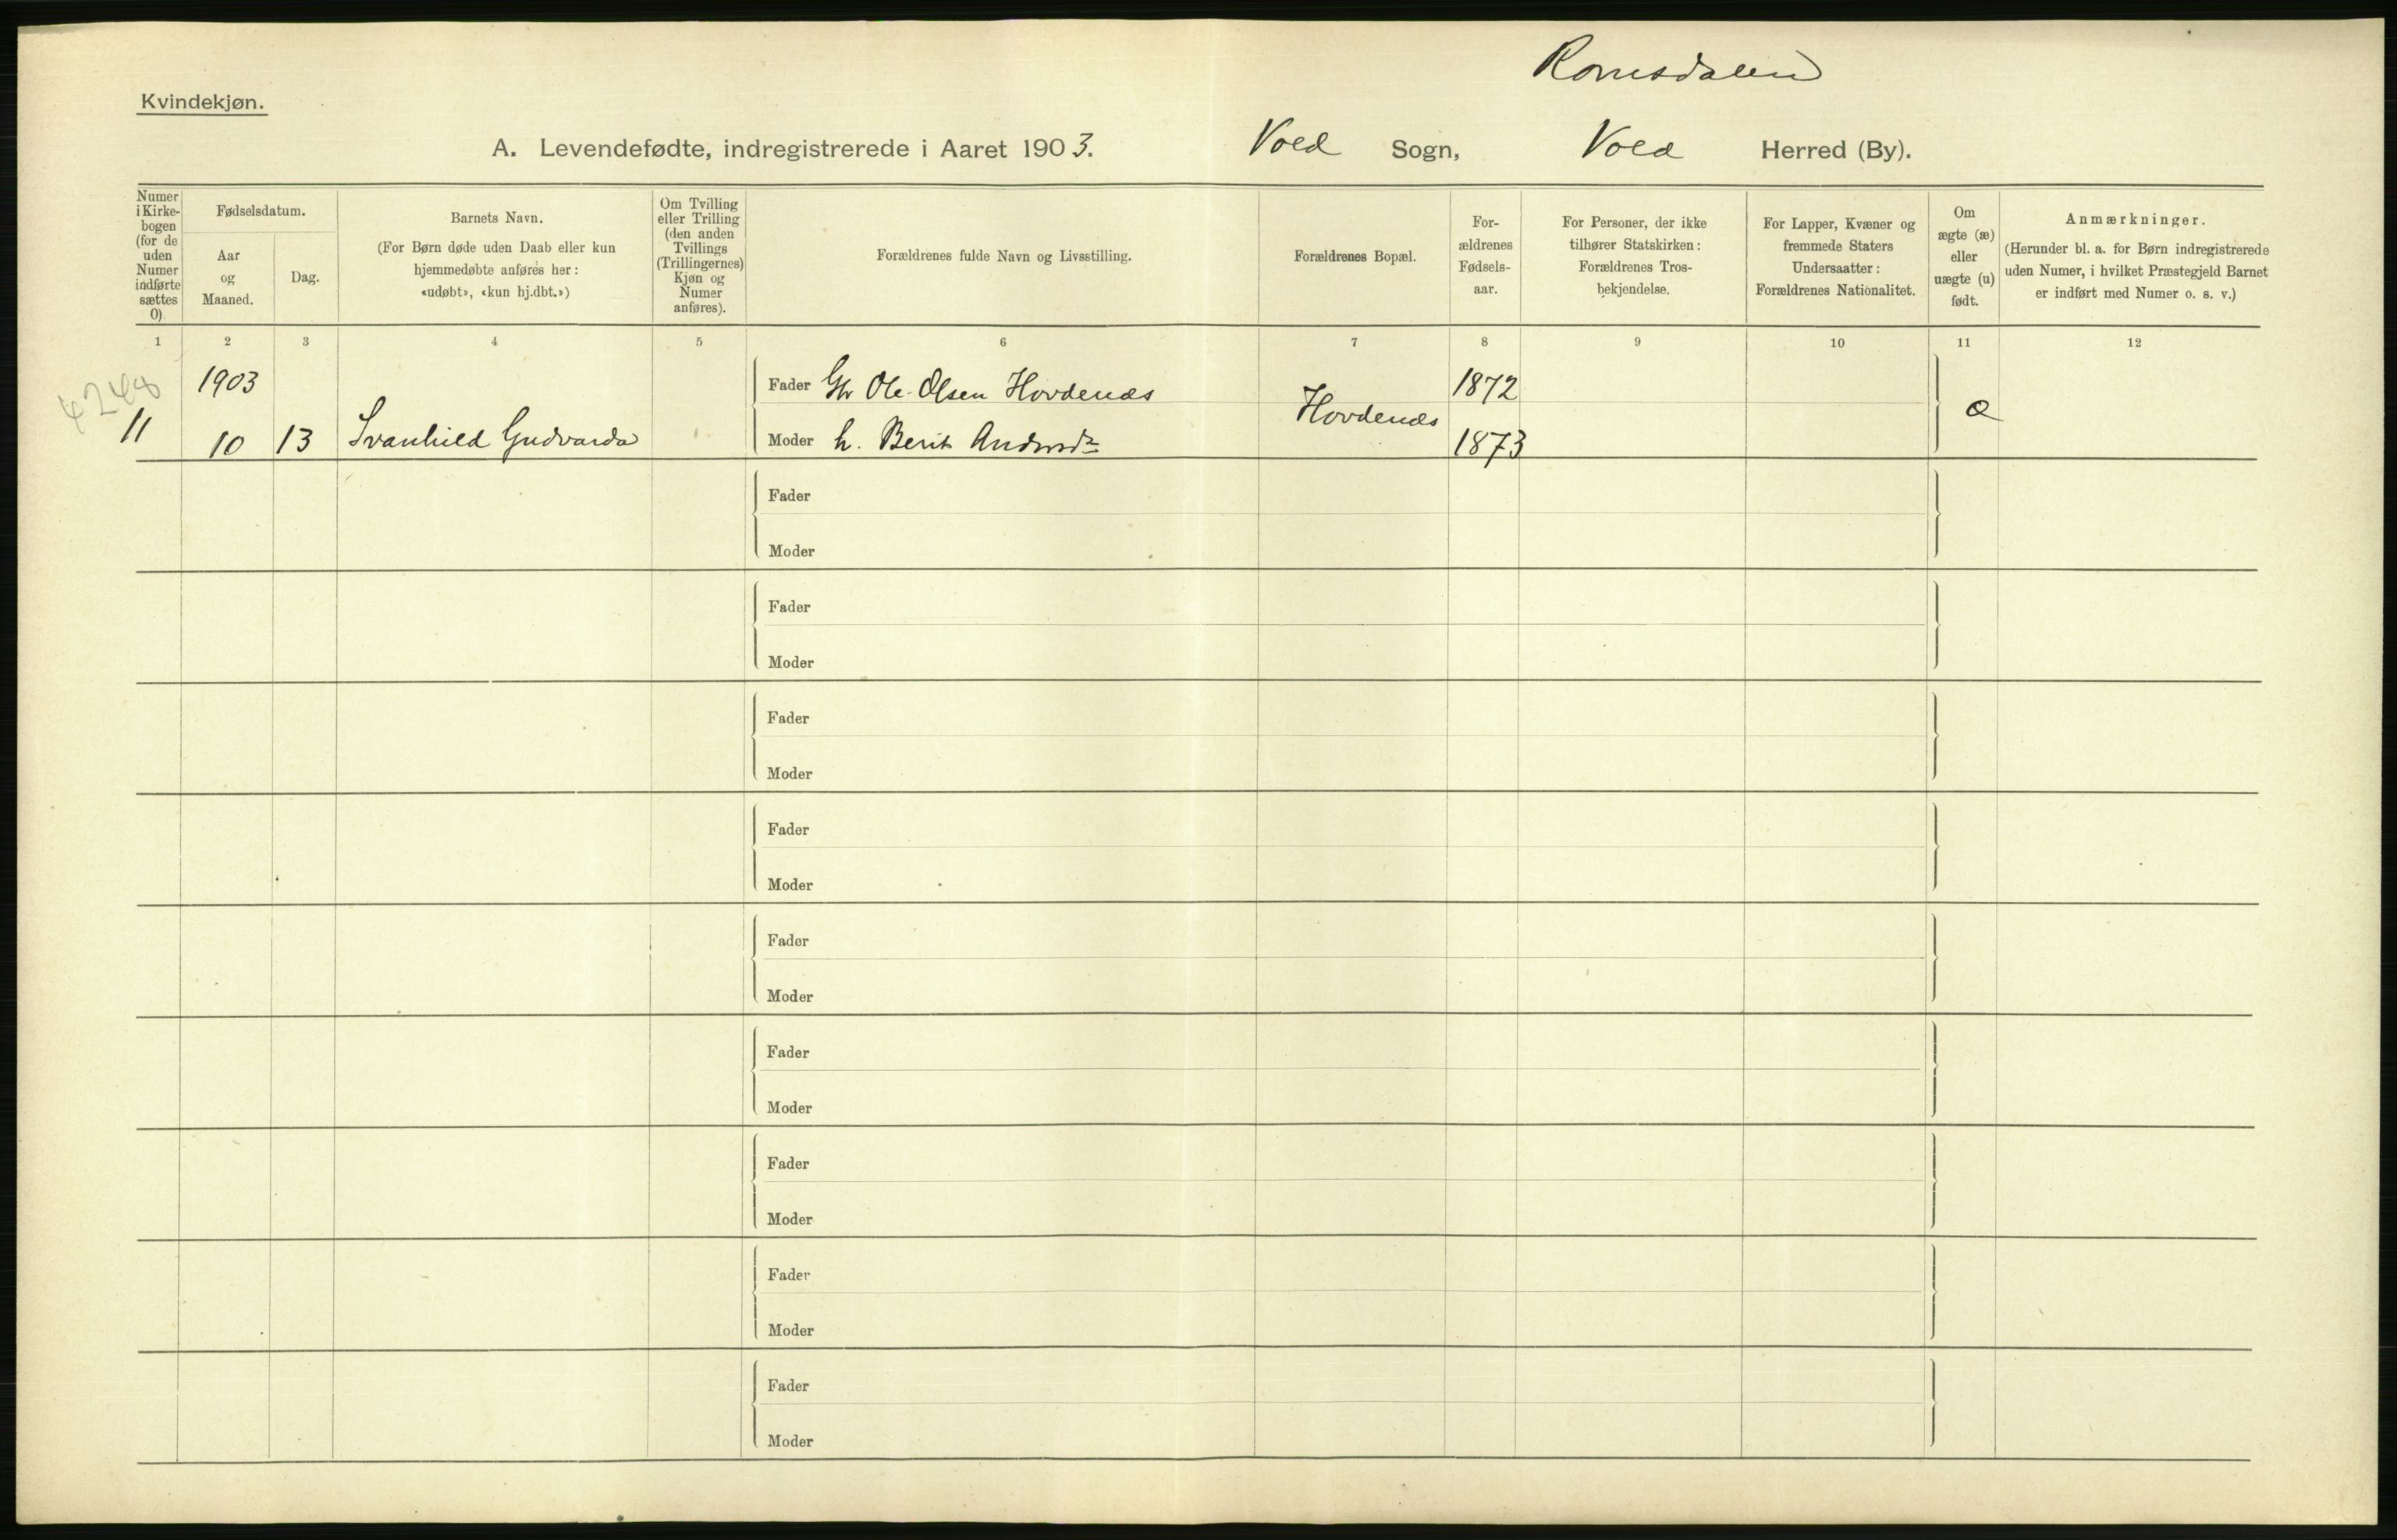 Romsdalen
Kvindekjøn.
A. Levendefødte, indregistrerede i Aaret 1903. Vold Sogn, Vold Herred (By).
Numer i Kirke-bogen (for de uden Numer indførte sættes 0)
Fødselsdatum.
Aar og Maaned.
Dag.
Barnets Navn.
(For Børn døde uden Daab eller kun
hjemmedøbte anføres her:
«udøbt», «kun hj.dbt.»)
Om Tvilling
eller Trilling
(den anden
Tvillings
(Trillingernes)
Kjøn og
Numer
anføres).
Forældrenes fulde Navn og Livsstilling.
Forældrenes Bopæl.
For-
ældrenes
Fødsels-
aar.
For Personer, der ikke
tilhører Statskirken:
Forældrenes Tros-
bekjendelse.
For Lapper, Kvæner og
fremmede Staters
Undersaatter:
Forældrenes Nationalitet.
Om
ægte (æ)
eller
uægte (u)
født.
Anmærkninger.
(Herunder bl. a. for Børn indregistrerede
uden Numer, i hvilket Præstegjeld Barnet
er indført med Numer o. s. v.)
1 2 3 4 5 6 7 8 9 10 11 12
4248
1903 Fader Gbr Ole Olsen Hovdenæs 1872
Hovdenæs æ
11 10 13 Svanhild Gudvarda Moder h. Berit Andersdr 1873
Fader
Moder
Fader
Moder
Fader
Moder
Fader
Moder
Fader
Moder
Fader
Moder
Fader
Moder
Fader
Moder
Fader
Moder